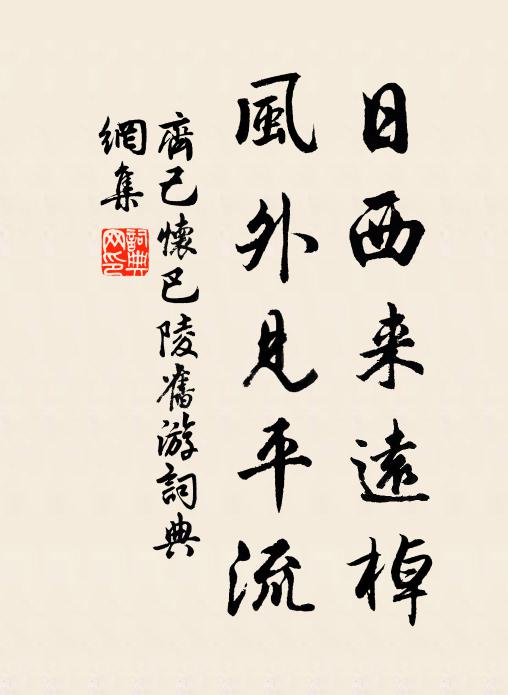 日西来遠棹
風外見平流
齊己懷巴陵舊游詞典
網集
詞典網印